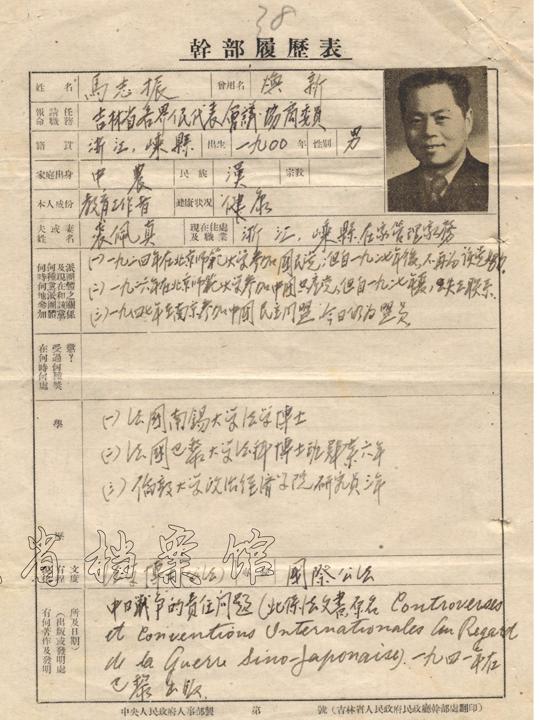 38
幹部履歷表
姓名 馬志振 曾用名 煥新
報請任命職務 吉林省各界人民代表會議協商委員
籍貫 浙江,嵊縣 出生 一九〇〇年 性別 男
家庭出身 中農 民族 漢 宗教
本人成份 教育工作者 健康狀況 健康
夫或妻姓名 裘佩真 現在住處及職業 浙江,嵊縣在家管理家務
何時何地參加何種黨派團體及現在和該黨派團體之關係
(一)一九二四年在北京師範大学參加國民党,但自一九二七年後,不再為該党
(二)一九二六年在北京師範大学參加中國共產党,但自一九二七年後,失去联系
(三)一九四七年在南京參加中國民主同盟 今日仍為盟員
在何時何處受過何種獎懲?
學歷
(一)法國南錫大学法学博士
(二)法國巴黎大学法科博士班肄業六年
(三)倫敦大学政治经濟学院研究員三年
省档案馆
文化程度 國際公法
有何著作及發明(出版或發明處所及日期)
中日戰爭的責任问题(此係法文書,原名 Controverses
et Conventions Internationales au Regard
de la Guerre Sino-Japonaise).一九四一年在
巴黎出版
中央人民政府人事部製 第 號(吉林省人民政府民政廳幹部處翻印)